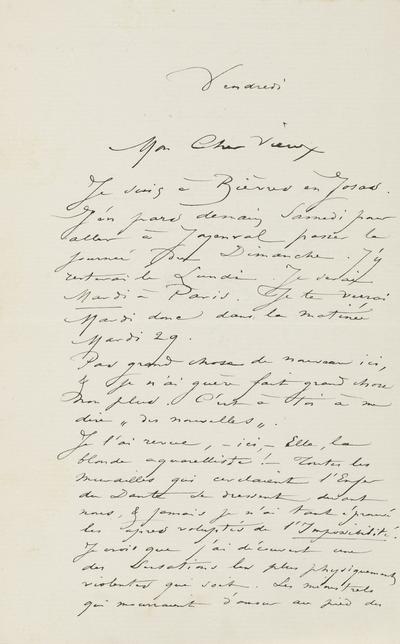 Vendredi
Mon Cher Vieux
Je suis à Bièvres en Josas.
J'en pars demain Samedi pour
aller à Joyenval passer la
journée du Dimanche. J'y
resterai le Lundi. Je serai
Mardi à Paris. Je te verrai
Mardi donc dans la matinée
Mardi 29.
Pas grand chose de nouveau ici,
& je n'ai guère fait grand chose
non plus. C'est à toi à me
dire „ des nouvelles „.
Je l'ai revue, – ici, – Elle, la
blonde aquarelliste! – Toutes les
murailles qui cerclaient l'Enfer
du Dante se dressent devant
nous, & jamais je n'ai tant éprouvé
les âpres voluptés de l'Impossibilité.
Je crois que j'ai découvert une
des Sensations les plus physiquement
violentes qui soit. Les menestrels
qui mouraient d'amour au pied des